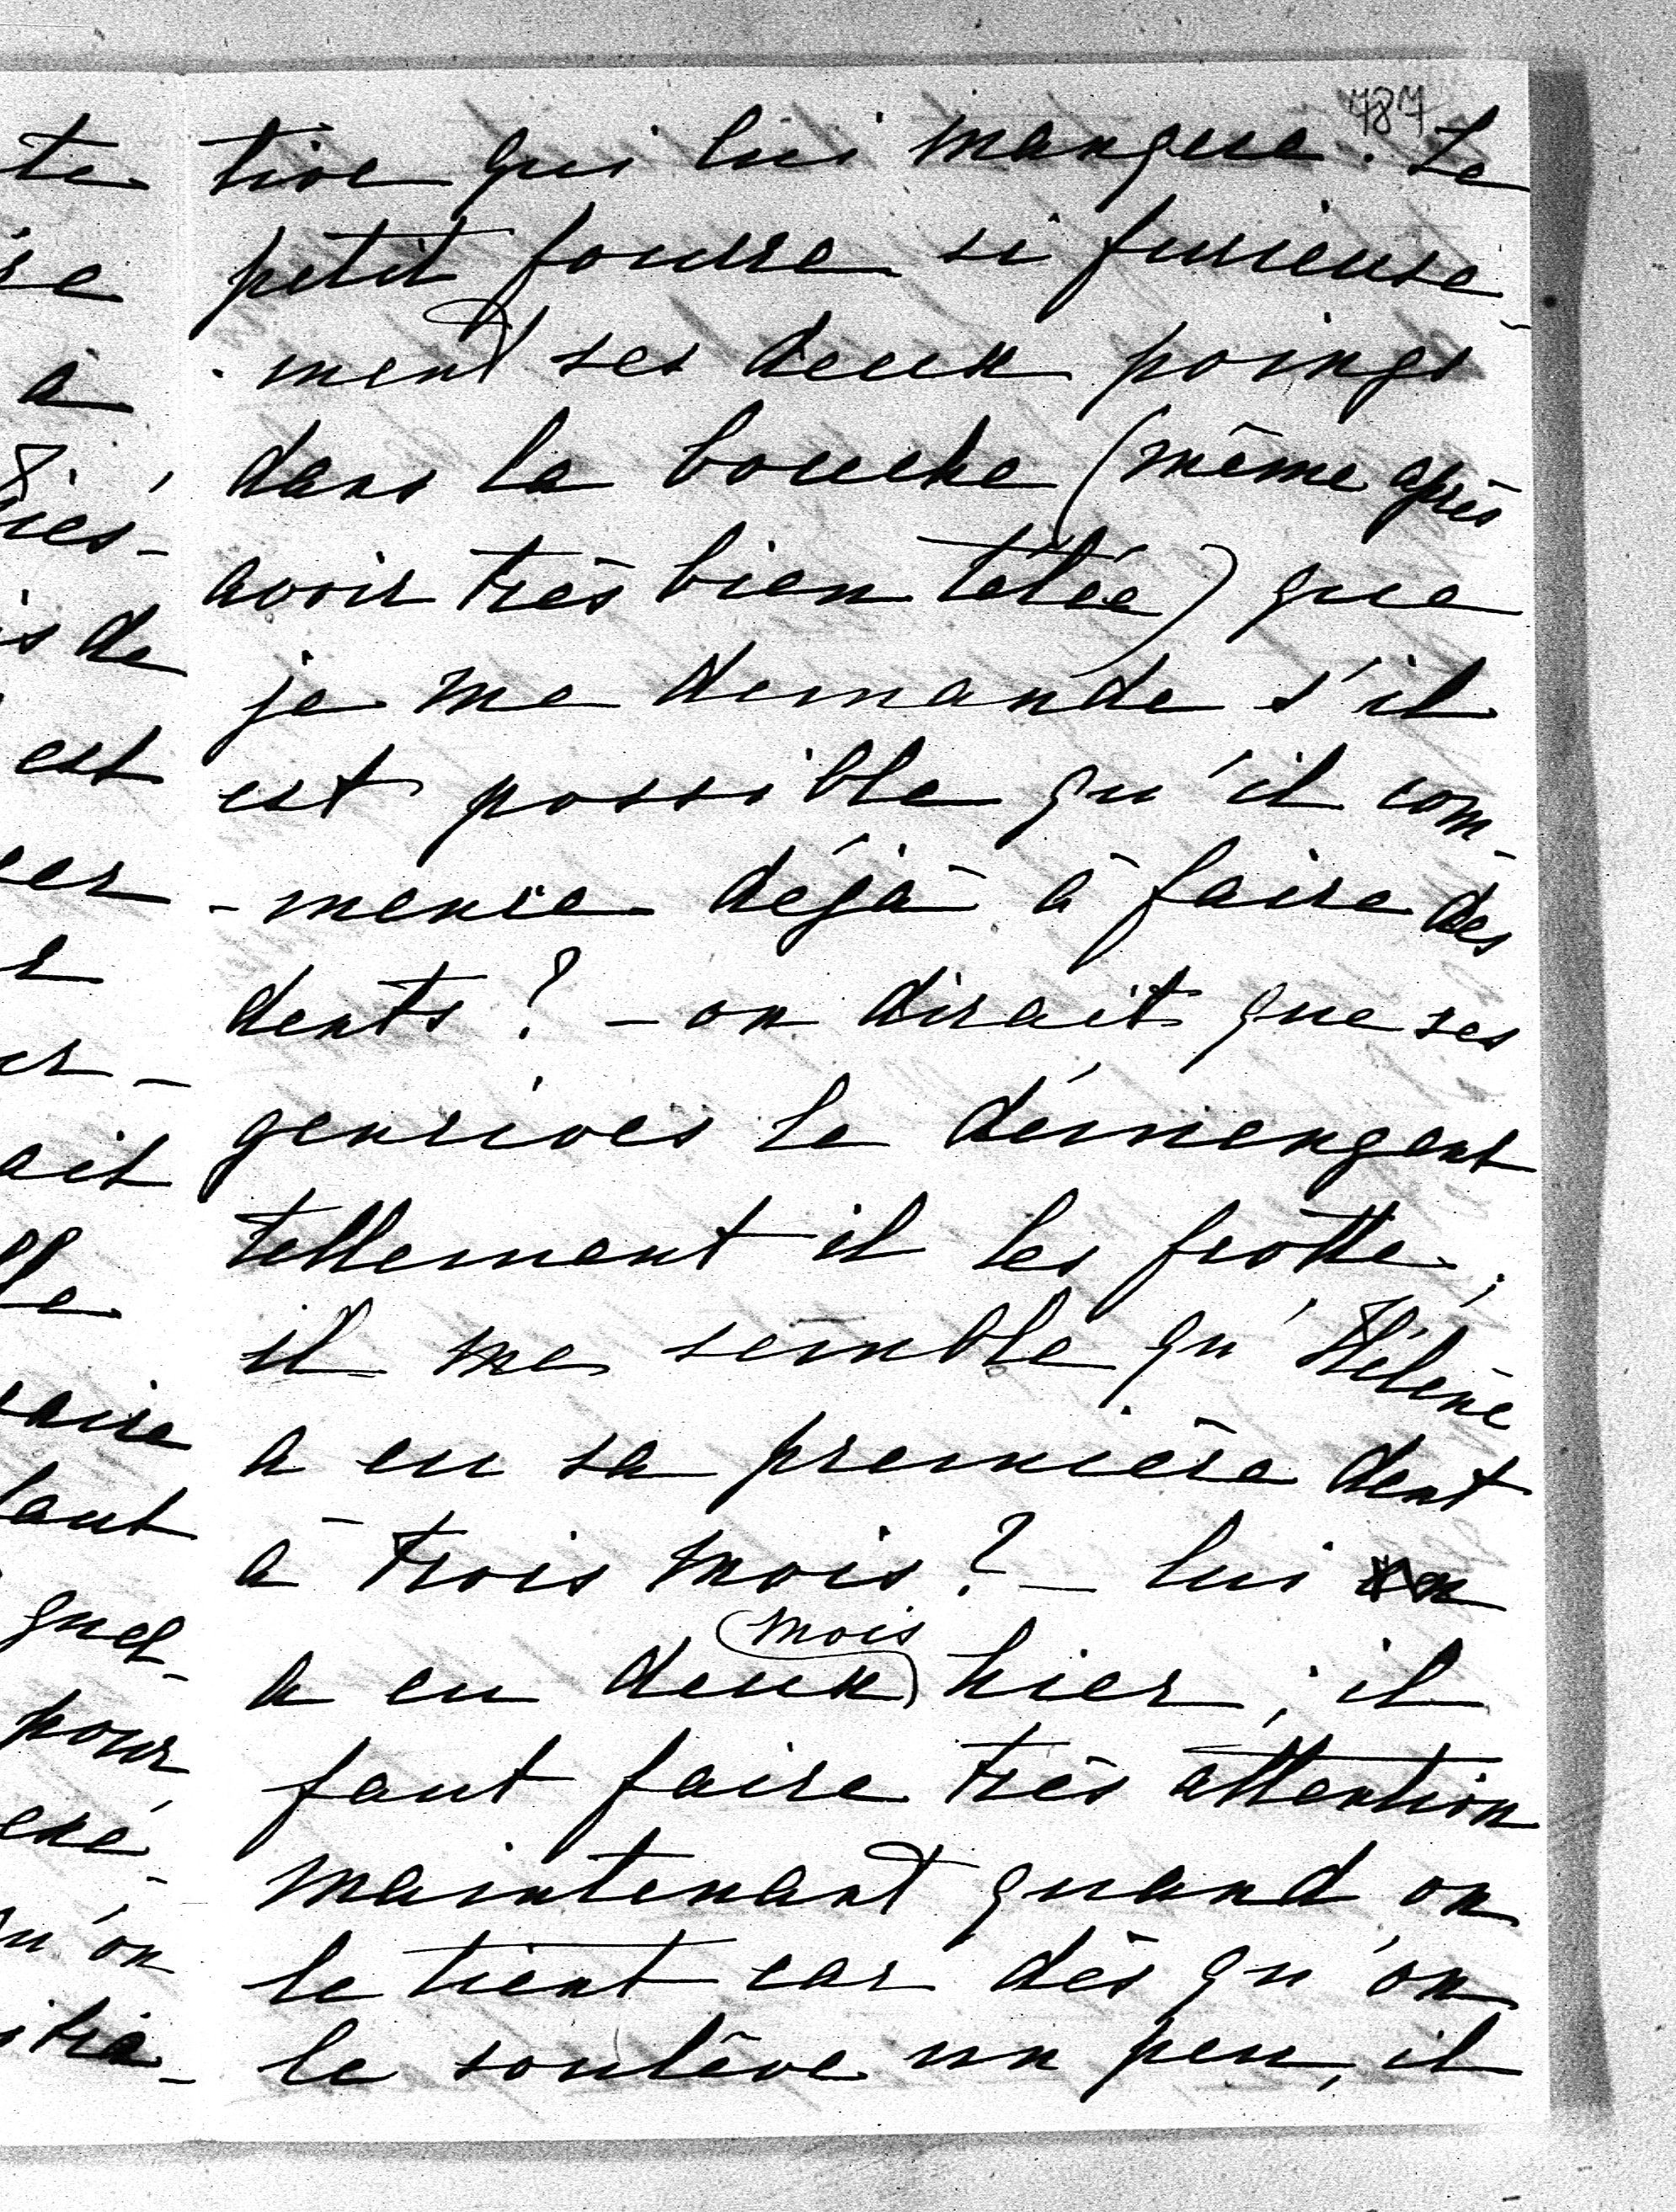 787
tive qui lui manque. Le
petit fourre si furieuse-
-ment ses deux poings
dans la bouche (même après
avoir très bien tétée) que
je me demande s'il
est possible qu'il com-
-mence déjà à faire des
dents ? - on dirait que ses
gencives le démengent
tellement il les frotte ;
il me semble qu'Hélène
a eu sa première dent
à trois mois ? - lui
mois
a eu deux hier ; il
faut faire très attention
maintenant quand on
le tient car dès qu'on
le soulève un peu, il
te
re
à
is de
est
er
ait
lle
aire
quel-
pour
exé-
u'on